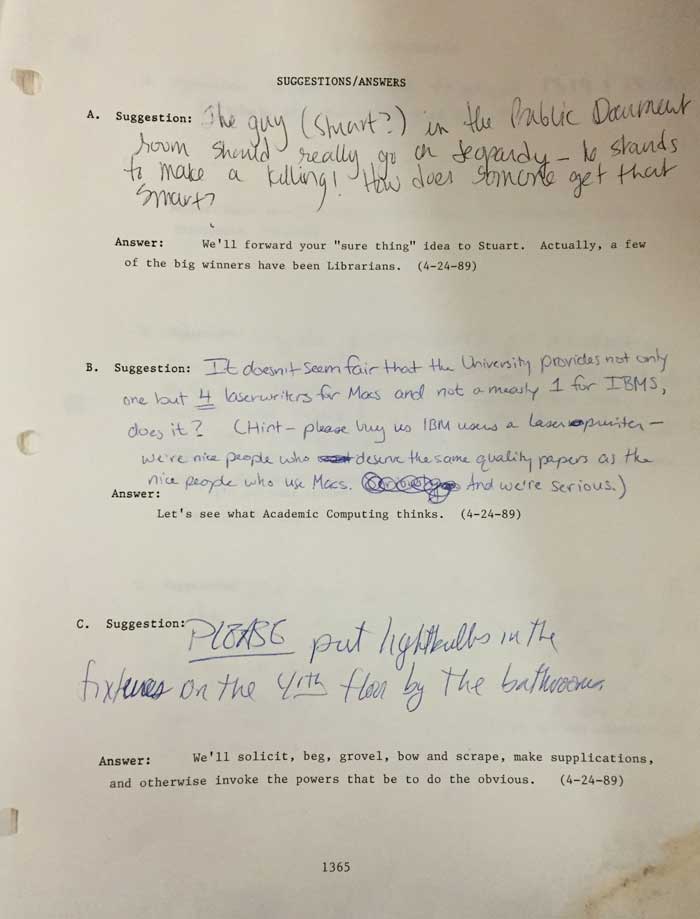 SUGGESTIONS/ANSWERS
A. Suggestion: The guy (Stuart?) in the Public Document
room should really go on Jeopardy – he stands
to make a killing! How does someone get that
smart?
Answer: We'll forward your "sure thing" idea to Stuart. Actually, a few
of the big winners have been Librarians. (4-24-89)
B. Suggestion: It doesn't seem fair that the University provides not only
one but 4 laserwriters for Macs and not a measly 1 for IBMS,
does it? (Hint – please buy us IBM users a laser printer –
we're nice people who deserve the same quality papers as the
nice people who use Macs. And we're serious.)
Answer:
Let's see what Academic Computing thinks. (4-24-89)
C. Suggestion: PLEASE put lightbulbs in the
fixtures on the 4th floor by the bathrooms
Answer: We'll solicit, beg, grovel, bow and scrape, make supplications,
and otherwise invoke the powers that be to do the obvious. (4-24-89)
1365